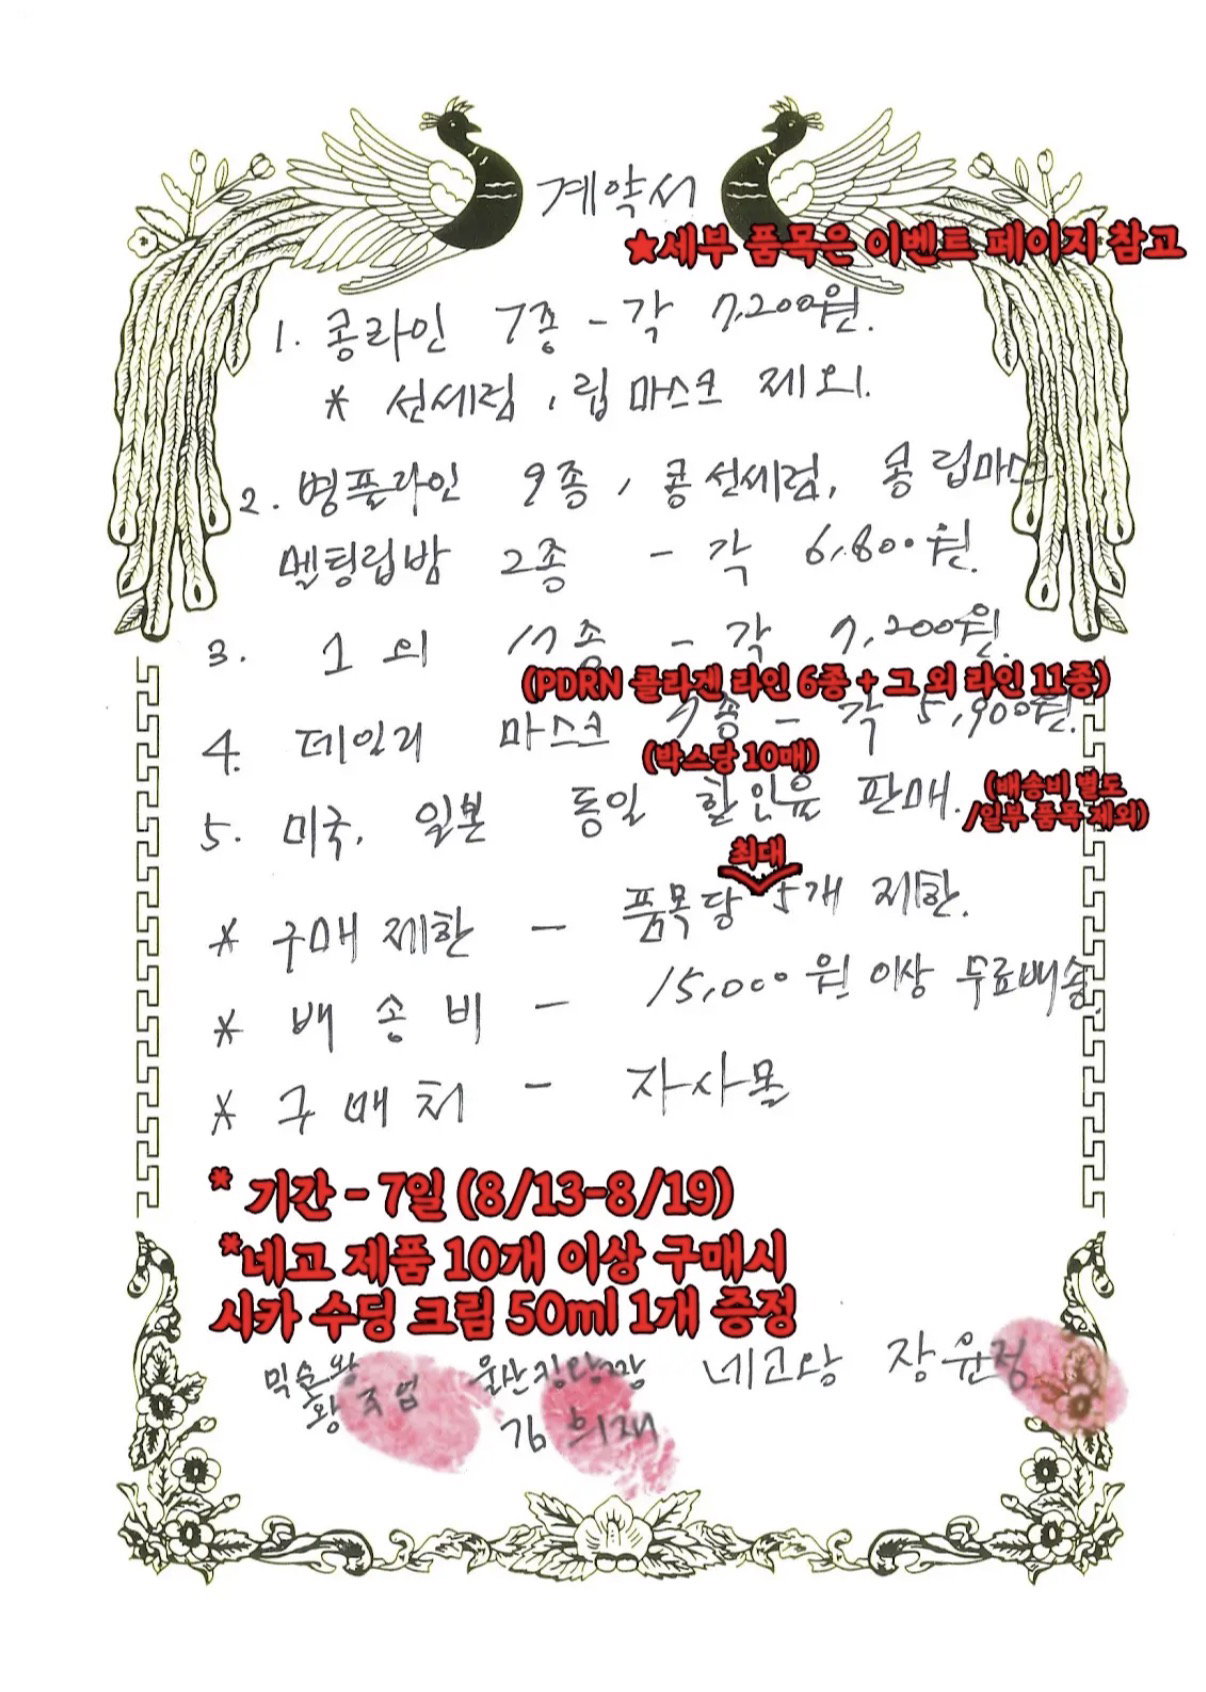 계약서
★세부 품목은 이벤트 페이지 참고
1. 콩라인 7종 - 각 7,200원.
* 선세럼, 립마스크 제외.
2. 병풀라인 9종, 콩선세럼, 콩립마스크
멜팅립밤 2종 - 각 6,800원.
3. 그 외 17종 - 각 7,200원.
(PDRN 콜라겐 라인 6종 + 그 외 라인 11종)
4. 데일리 마스크 7종 - 각 5,900원.
(박스당 10매)
5. 미국, 일본 동일 할인율 판매.
(배송비 별도
/일부 품목 제외)
최대
* 구매제한 - 품목당 5개 제한.
* 배송비 - 15,000원 이상 무료배송.
* 구매처 - 자사몰
* 기간 - 7일 (8/13-8/19)
*네고 제품 10개 이상 구매시
시카 수딩 크림 50ml 1개 증정
믹순왕 네고왕 장윤정
김희재